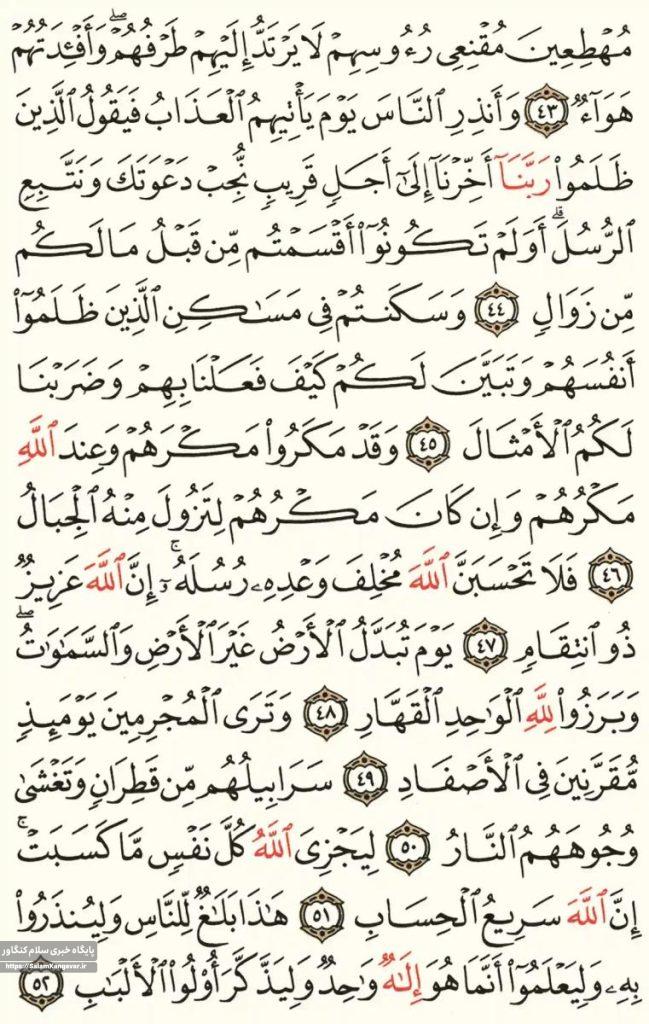 مُهْطِعِينَ مُقْنِعِي رُءُوسِهِمْ لَا يَرْتَدُّ إِلَيْهِمْ طَرْفُهُمْ ۖ وَأَفْـِٔدَتُهُمْ
هَوَآءٌ ﴿٤٣﴾ وَأَنذِرِ ٱلنَّاسَ يَوْمَ يَأْتِيهِمُ ٱلْعَذَابُ فَيَقُولُ ٱلَّذِينَ
ظَلَمُوا۟ رَبَّنَآ أَخِّرْنَآ إِلَىٰٓ أَجَلٍ قَرِيبٍ نُّجِبْ دَعْوَتَكَ وَنَتَّبِعِ
ٱلرُّسُلَ ۗ أَوَلَمْ تَكُونُوٓا۟ أَقْسَمْتُم مِّن قَبْلُ مَا لَكُم
مِّن زَوَالٍ ﴿٤٤﴾ وَسَكَنتُمْ فِي مَسَـٰكِنِ ٱلَّذِينَ ظَلَمُوٓا۟
أَنفُسَهُمْ وَتَبَيَّنَ لَكُمْ كَيْفَ فَعَلْنَا بِهِمْ وَضَرَبْنَا
لَكُمُ ٱلْأَمْثَالَ ﴿٤٥﴾ وَقَدْ مَكَرُوا۟ مَكْرَهُمْ وَعِندَ ٱللَّهِ
مَكْرُهُمْ وَإِن كَانَ مَكْرُهُمْ لِتَزُولَ مِنْهُ ٱلْجِبَالُ
﴿٤٦﴾ فَلَا تَحْسَبَنَّ ٱللَّهَ مُخْلِفَ وَعْدِهِۦ رُسُلَهُۥٓ ۚ إِنَّ ٱللَّهَ عَزِيزٌ
ذُو ٱنتِقَامٍ ﴿٤٧﴾ يَوْمَ تُبَدَّلُ ٱلْأَرْضُ غَيْرَ ٱلْأَرْضِ وَٱلسَّمَـٰوَٰتُ ۖ
وَبَرَزُوا۟ لِلَّهِ ٱلْوَٰحِدِ ٱلْقَهَّارِ ﴿٤٨﴾ وَتَرَى ٱلْمُجْرِمِينَ يَوْمَئِذٍ
مُّقَرَّنِينَ فِي ٱلْأَصْفَادِ ﴿٤٩﴾ سَرَابِيلُهُم مِّن قَطِرَانٍ وَتَغْشَىٰ
وُجُوهَهُمُ ٱلنَّارُ ﴿٥٠﴾ لِيَجْزِيَ ٱللَّهُ كُلَّ نَفْسٍ مَّا كَسَبَتْ ۚ
إِنَّ ٱللَّهَ سَرِيعُ ٱلْحِسَابِ ﴿٥١﴾ هَـٰذَا بَلَـٰغٌ لِّلنَّاسِ وَلِيُنذَرُوا۟
بِهِۦ وَلِيَعْلَمُوٓا۟ أَنَّمَا هُوَ إِلَـٰهٌ وَٰحِدٌ وَلِيَذَّكَّرَ أُو۟لُوا۟ ٱلْأَلْبَـٰبِ ﴿٥٢﴾
پایگاه خبری سلام کنگاور
https://SalamKangavar.ir